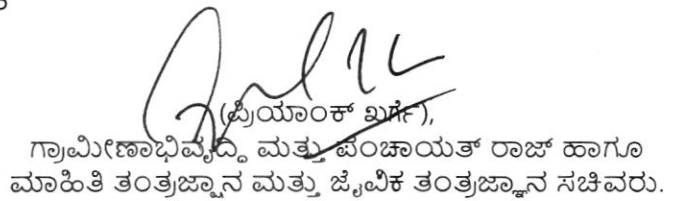 (ಪ್ರಿಯಾಂಕ್ ಖರ್ಗೆ),
ಗ್ರಾಮೀಣಾಭಿವೃದ್ದಿ ಮತ್ತು ಪಂಚಾಯತ್ ರಾಜ್ ಹಾಗೂ
ಮಾಹಿತಿ ತಂತ್ರಜ್ಞಾನ ಮತ್ತು ಜೈವಿಕ ತಂತ್ರಜ್ಞಾನ ಸಚಿವರು.